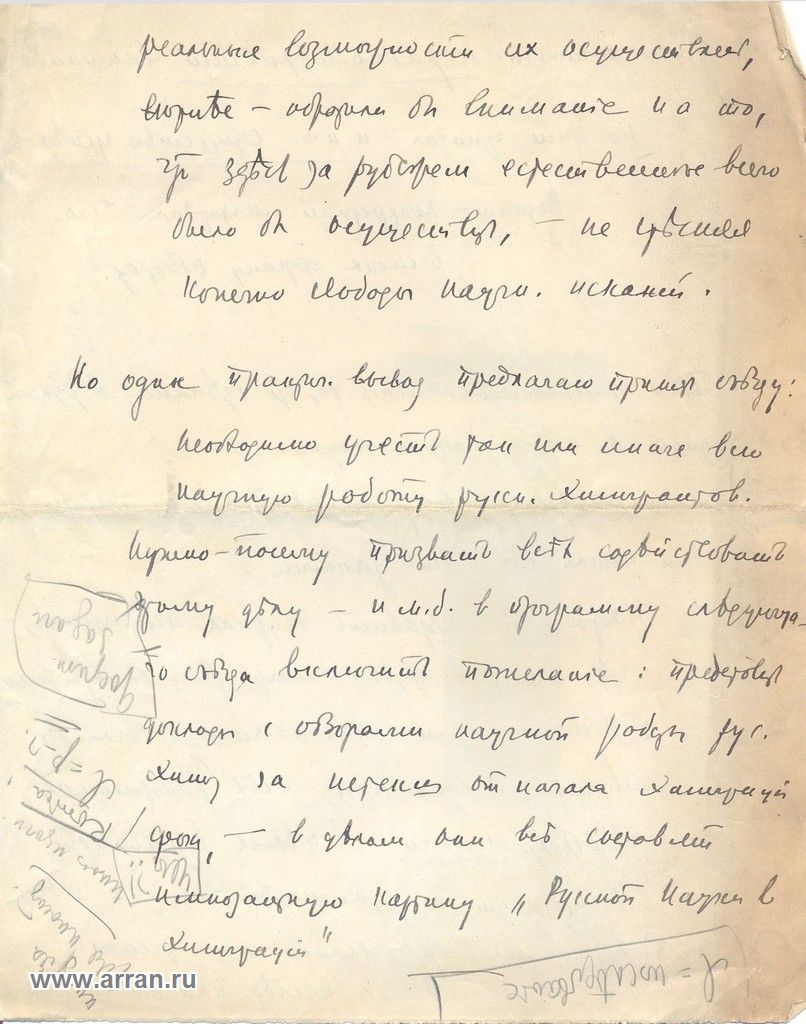 реальныя возможности их осуществлен,
скорѣе — обратил бы вниманіе на то,
что здѣсь за рубежем естественнѣе всего
было бы осуществ, — не стѣсняя
конечно свободы научн. исканій.
Но один практич. вывод предлагаю принять съѣзду:
необходимо учесть так или иначе всю
научную работу русск. эмигрантов.
Нужно — посему призвать всѣх содѣйствовать
этому дѣлу — и м.б. в программу слѣдующа-
го съѣзда включить пожеланіе: представить
доклады с обзорами научной работы рус.
эмигр за истекш от начала эмиграціи
срок, — в цѣлом они всѣ составят
импозантную картину „Русской Науки в
эмиграціи"
www.arran.ru